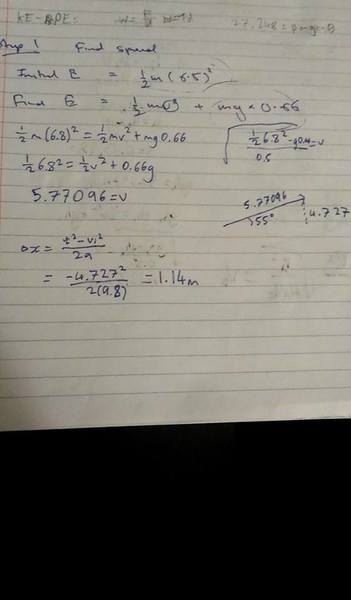 KE - PE =
Step 1 Find speed
Initial E = ½m(6.5)²
Final E = ½mv² + mg × 0.66
½m(6.8)² = ½mv² + mg0.66
√((½6.8² - g0.66)/0.5) = v
½6.8² = ½v² + 0.66g
5.77096 = v
5.77096
55°
4.727
Δx = (t² - vi²)/2a
= -4.727²/2(9.8) = 1.14m